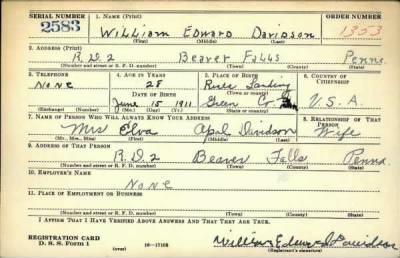 SERIAL NUMBER 1. NAME (Print) ORDER NUMBER
2583 William Edward Davidson 1353
(First) (Middle) (Last)
2. ADDRESS (Print)
R.D.2 Beaver Falls Penna.
(Number and street or R. F. D. number) (Town) (County) (State)
3. TELEPHONE 4. AGE IN YEARS 5. PLACE OF BIRTH 6. COUNTRY OF CITIZENSHIP
None 28 Landing
DATE OF BIRTH (Town or county)
June 15 1911 Green Co. U.S.A.
(Exchange) (Number) (Mo.) (Day) (Yr.) (State or country)
7. NAME OF PERSON WHO WILL ALWAYS KNOW YOUR ADDRESS 8. RELATIONSHIP OF THAT PERSON
Mrs Elva Opal Davidson Wife
(Mr., Mrs., Miss) (First) (Middle) (Last)
9. ADDRESS OF THAT PERSON
R.D.2 Beaver Falls Penna
(Number and street or R. F. D. number) (Town) (County) (State)
10. EMPLOYER'S NAME
None
11. PLACE OF EMPLOYMENT OR BUSINESS
(Number and street or R. F. D. number) (Town) (County) (State)
I AFFIRM THAT I HAVE VERIFIED ABOVE ANSWERS AND THAT THEY ARE TRUE.
REGISTRATION CARD
D. S. S. Form 1 (over) 16—17105 William Edward Davidson
(Registrant's signature)